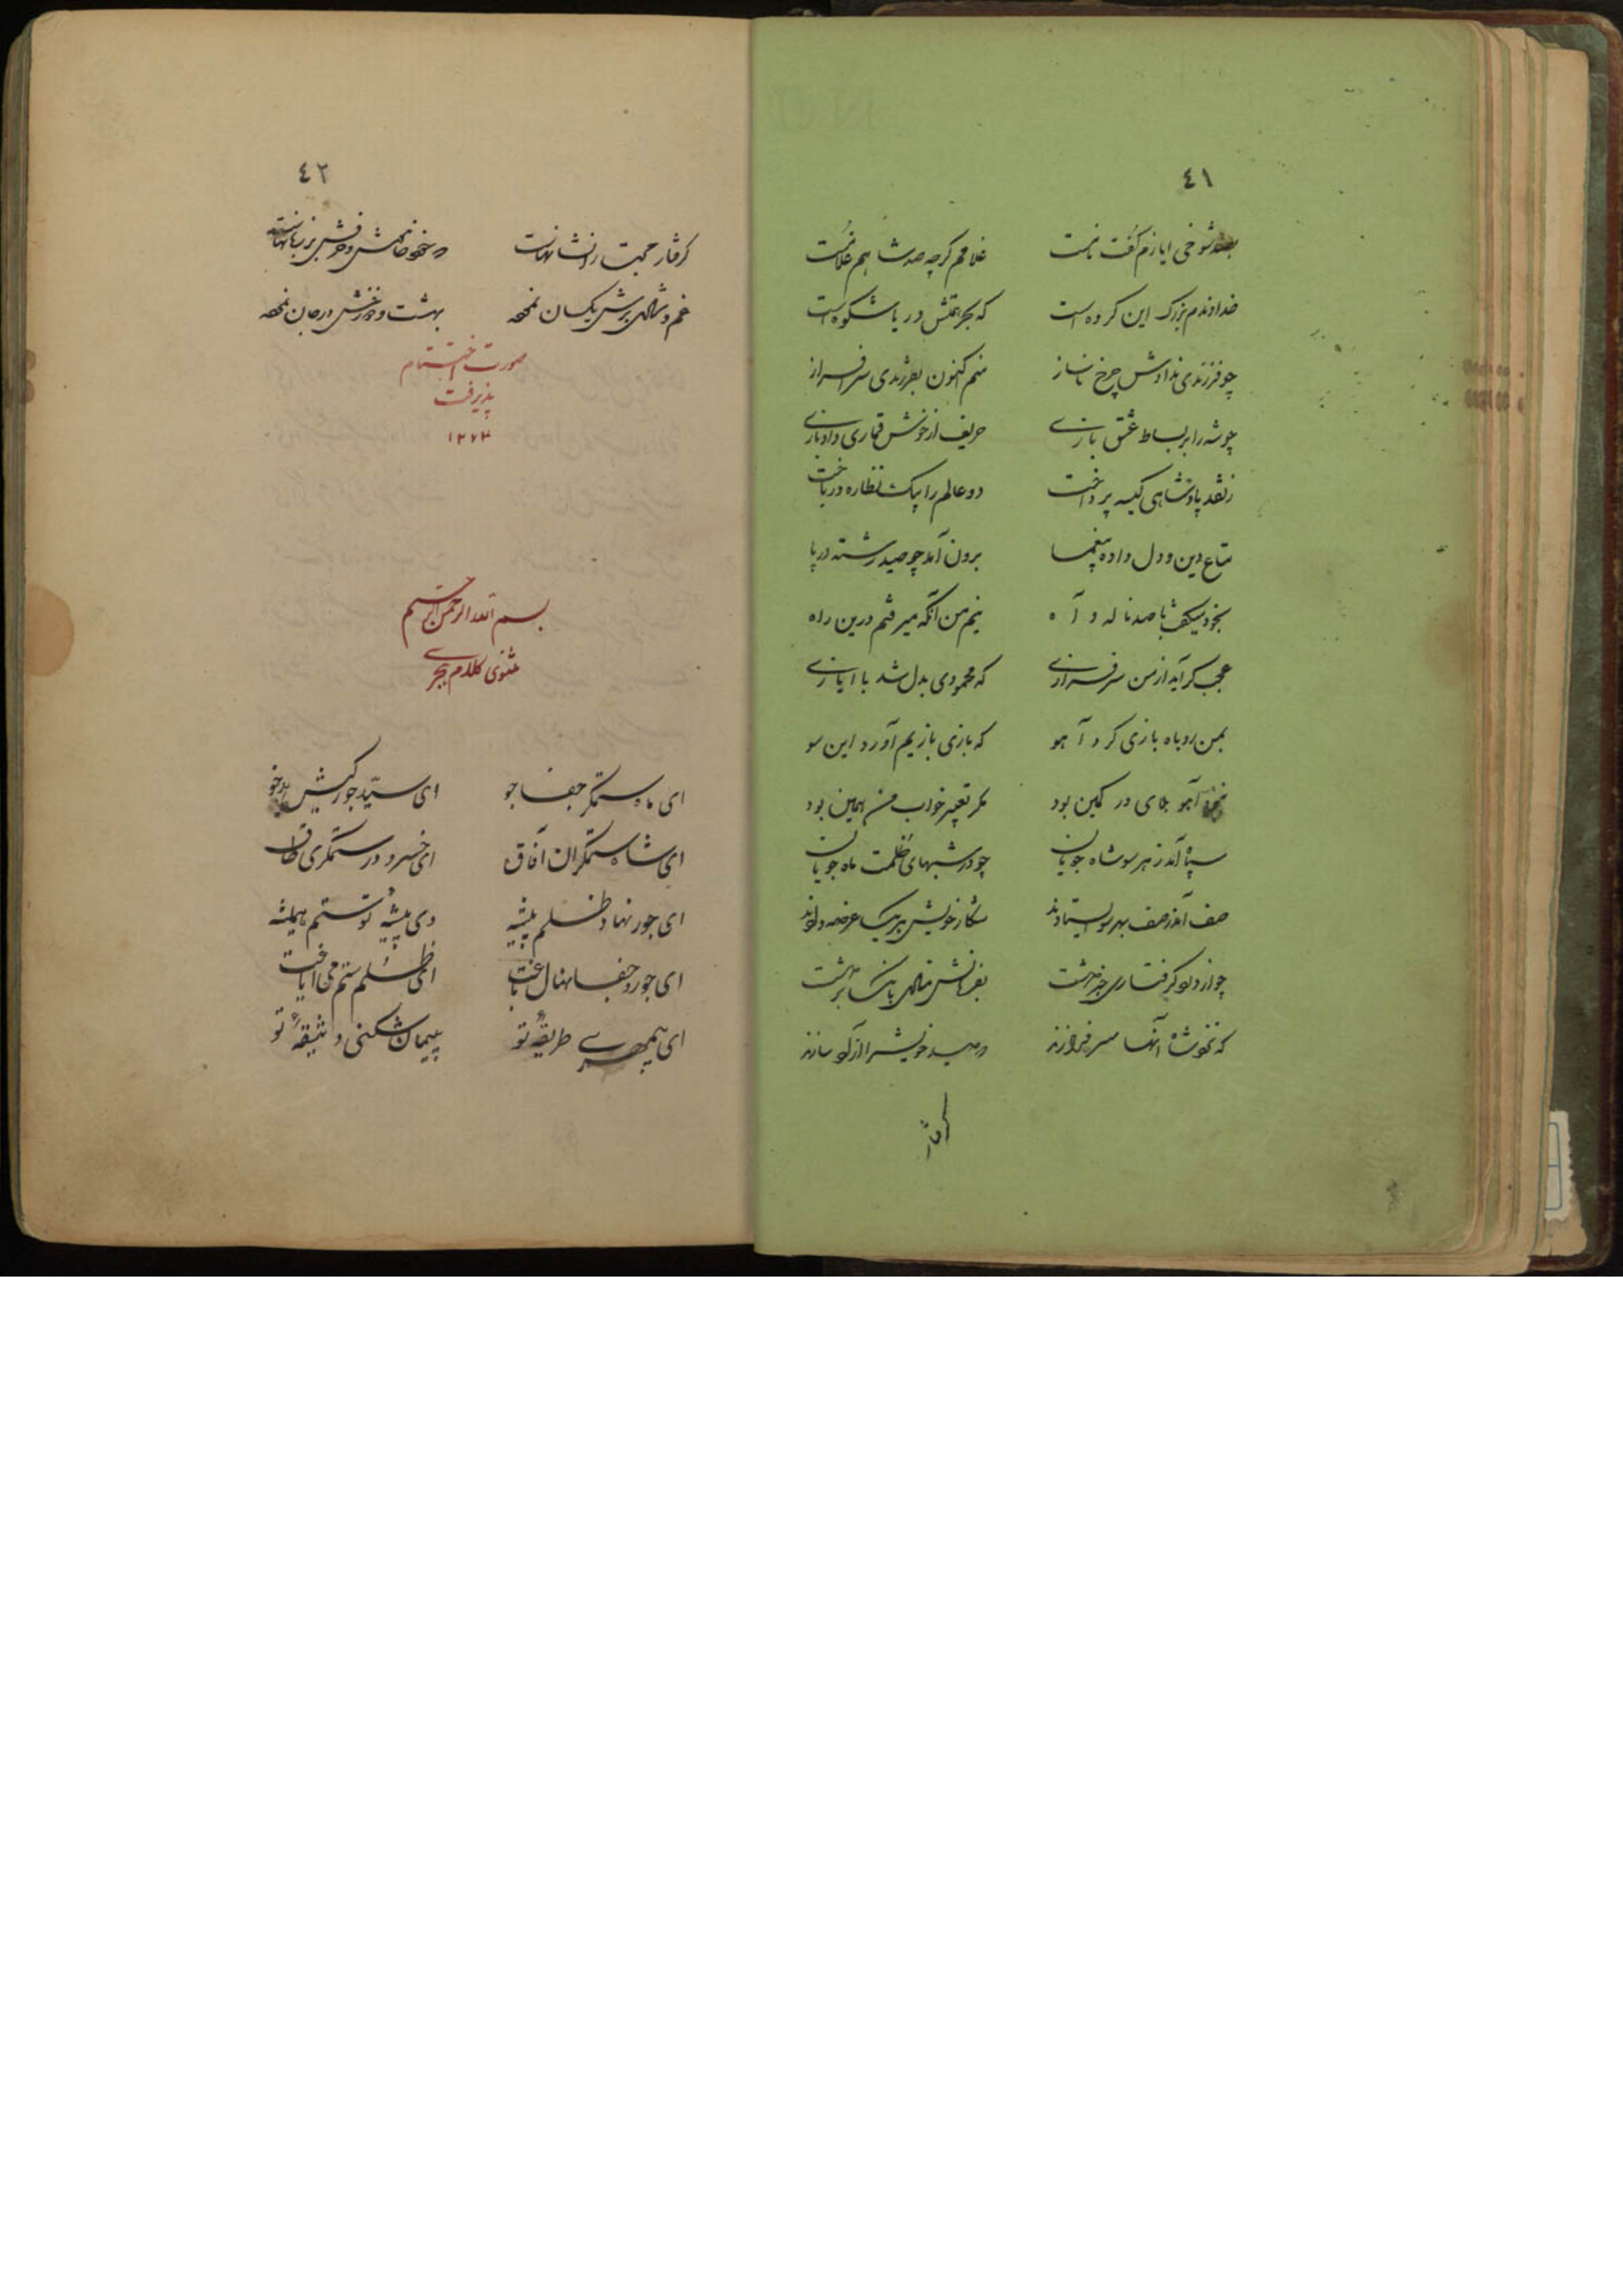 ٤١
بصد شوخی ایازم گفت نامست غلامم گرچه صد شاهم غلامست
خداوندم بزرگ این گروه است که بحر همتش دریا شکوه است
چو فرزندی ندادش چرخ ناساز منم اکنون بفرزندی سرافراز
چو شه را بر بساط عشق بازی حریف از خویش قماری داد بازی
ز نقد پادشاهی کیسه پرداخت دو عالم را بیک نظاره درباخت
متاع دین و دل داده بیغما برون آمد چو صید رشته در پا
بخود میگفت با صد ناله و آه نیم من آنکه میرفتم درین راه
عجب گر آید از من سرفرازی که محمودی بدل شد با ایازی
بمن روباه بازی کرد آهو که بازی بازیم آورد این سو
نه آهو بلای در کمین بود مگر تعبیر خواب من همین بود
سپاه آمد ز هر سو شاه جویان چو در شبهای ظلمت ماه جویان
صف آمد صف بهر سو ایستادند شکار خویش هر یک عرضه دادند
چو از دلو گرفتاری
که شاه آنها سرفرازند صید خویش را سازند
گرفتار
٤٢
گرفتار محبت را نشانهاست خموش و بر زبانهاست
غم و شادی برش یکسان بهشت و دوزخش در جان
صورت اختتام
پذیرفت
١٢٧٣
بسم الله الرحمن الرحیم
مثنوی کلام هجری
ای ماه ستمگر جفا جو ای سید جور کیش بدخو
ای شاه ستمگران آفاق ای خسرو در ستمگری طاق
ای جور نهاد ظلم پیشه وی پیشهٔ تو ستم همیشه
ای جور و جفا نهال باغت ای ظلم و ستم می ایاغت
ای بیمهری طریقهٔ تو پیمان شکنی وثیقهٔ تو